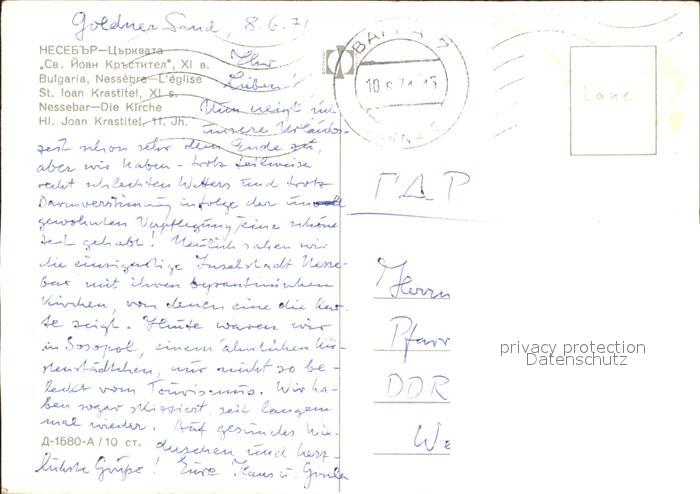 Goldner Sand, 8. 6. 71
НЕСЕБЪР—Църквата
„Св. Йоан Кръстител", XI в.
Bulgaria, Nessèbre—L'église
St. Ioan Krastitel, XI s.
Nessebar—Die Kirche
Hl. Joan Krastitel, 11. Jh.
Ihr
Lieben!
Nun neigt sich
unsere Urlaubs-
zeit schon sehr dem Ende zu
aber wir haben - trotz teilweise
recht schlechten Wetters und trotz
Darmverstimmung infolge der un
gewohnten Verpflegung eine schöne
Zeit gehabt! Neulich sahen wir
die einzigartige Inselstadt Nesse-
bar mit ihren byzantinischen
Kirchen, von denen eine die Kar-
te zeigt. Heute waren wir
in Sosopol, einem ähnlichen Kü-
stenstädtchen, nur nicht so be-
leckt vom Tourismus. Wir ha-
ben sogar skizziert, seit langem
mal wieder. Auf gesundes Wie-
Д-1580-А / 10 ст.
dersehen und herz-
lichste Grüße! Eure Hans u. Gisela
ВАРНА 7
10. 6. 71 15
VARNA
Lane
ГДР
Herrn
Pfarr
DDR
We
privacy protection
Datenschutz